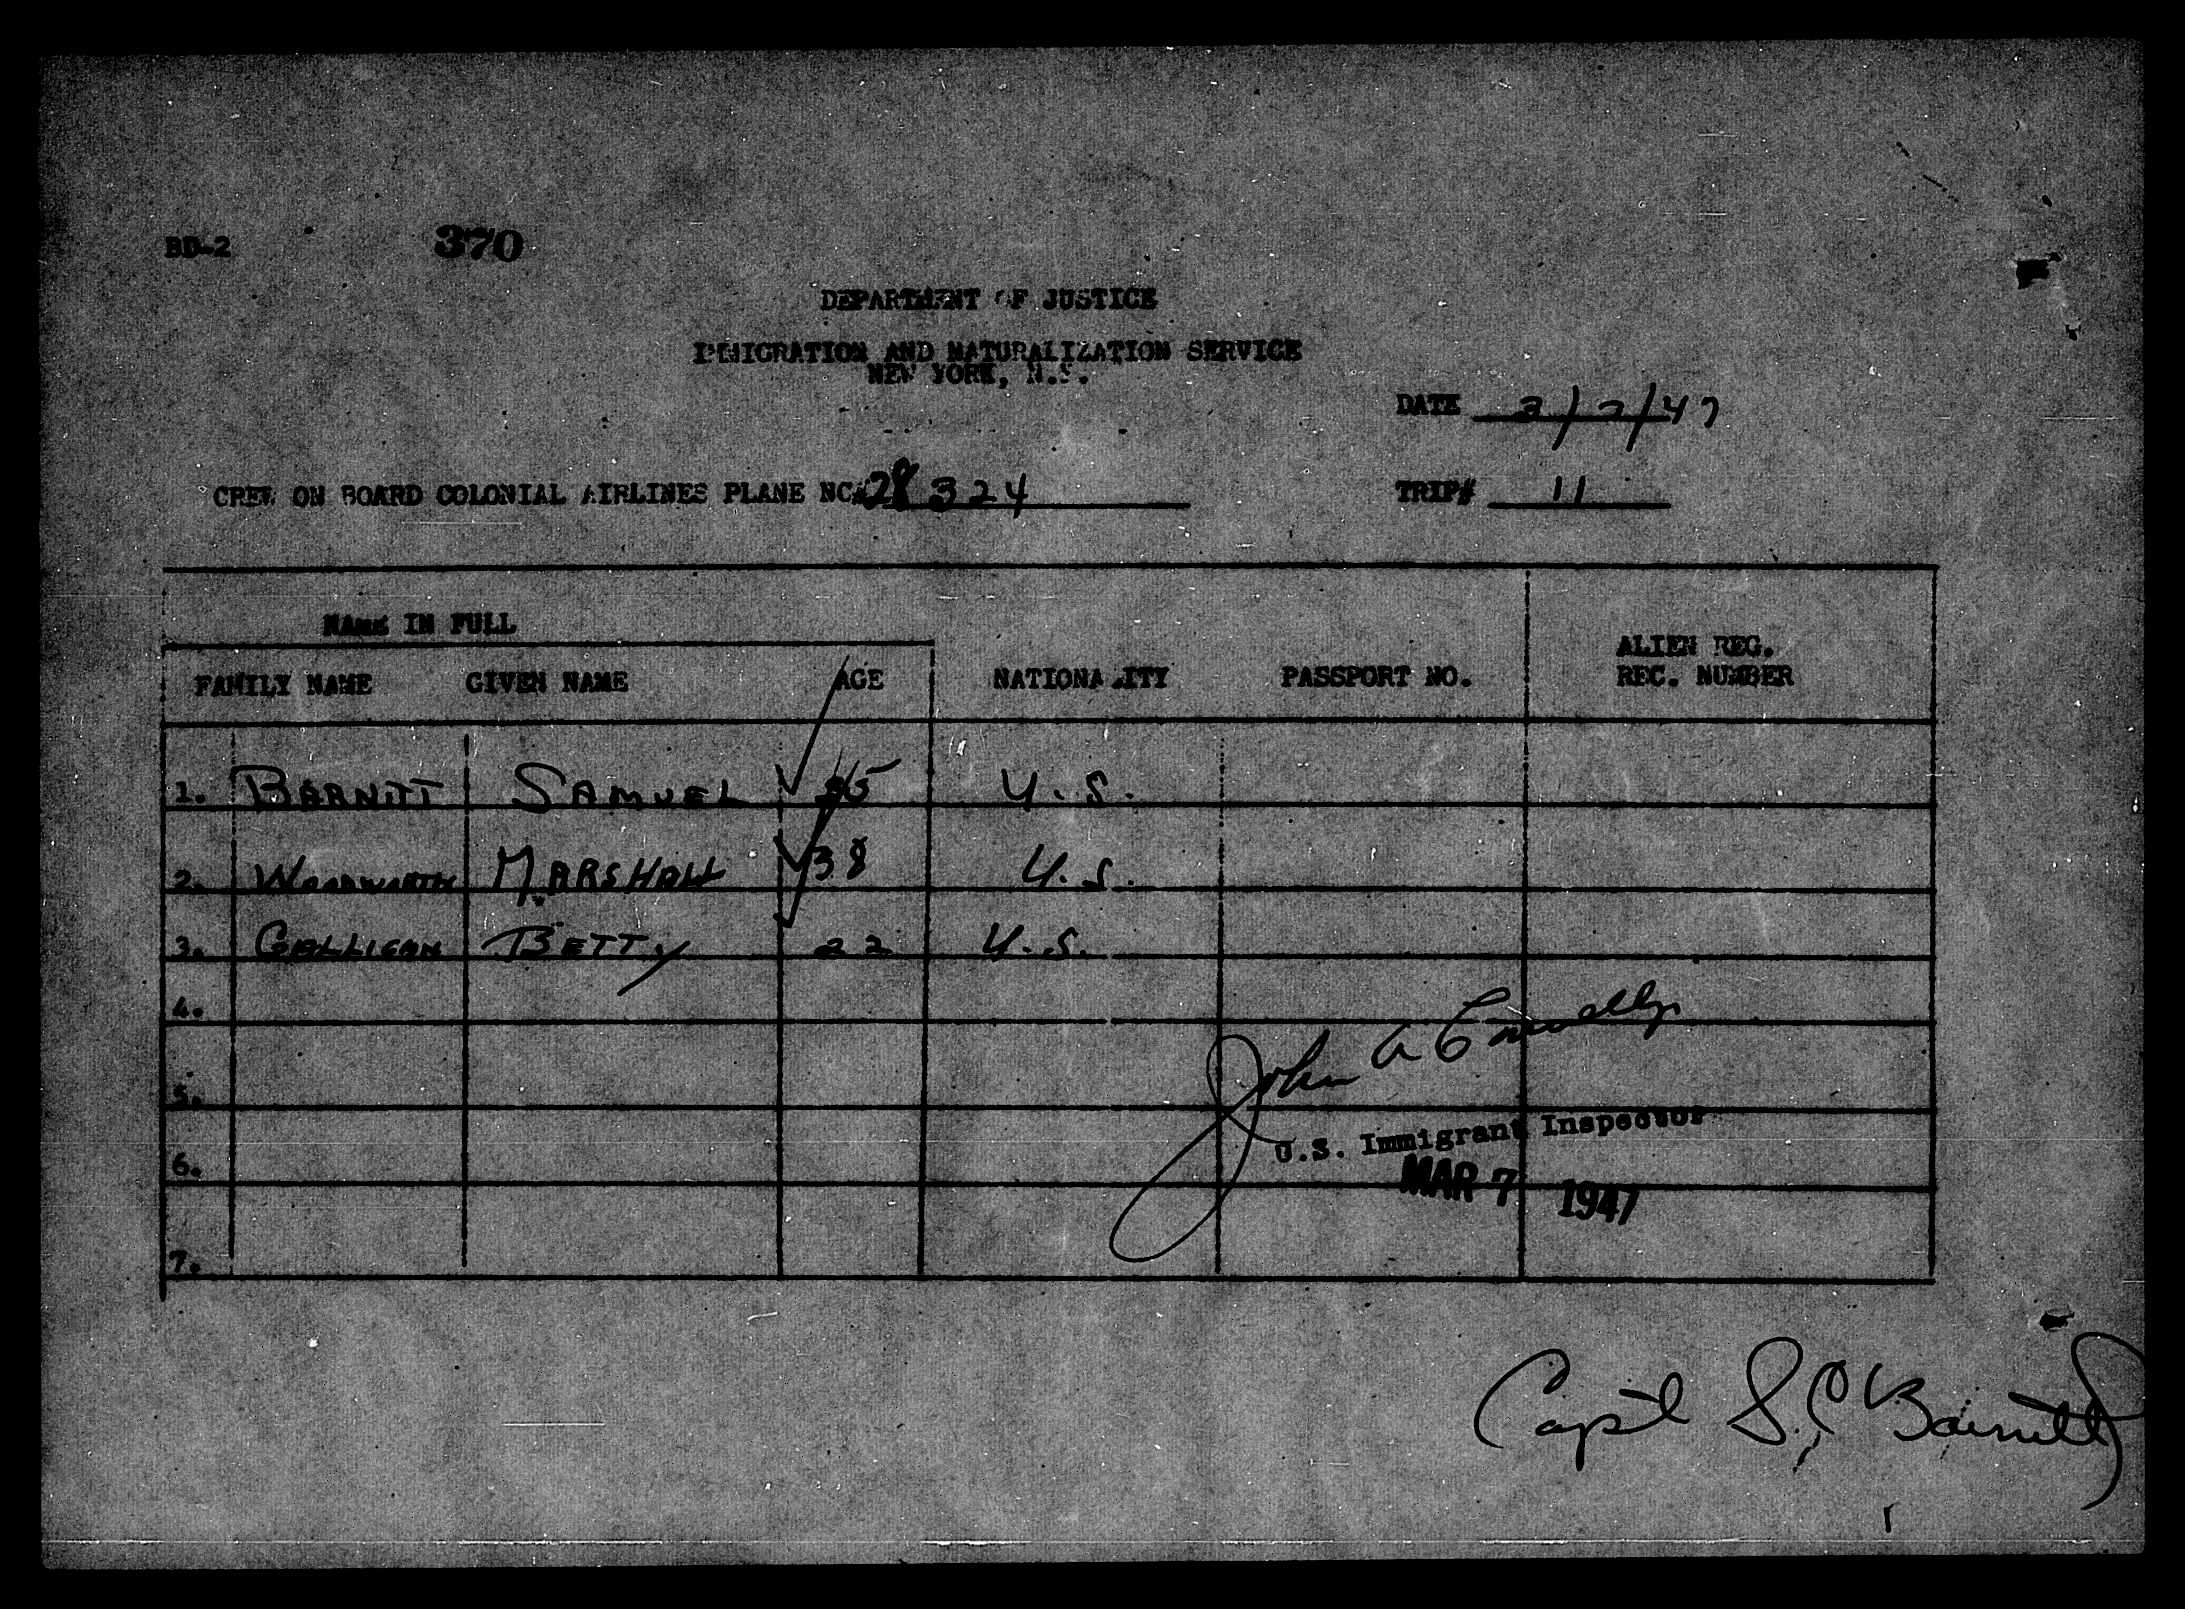 BD-2 370
DEPARTMENT OF JUSTICE
IMMIGRATION AND NATURALIZATION SERVICE
NEW YORK, N.Y.
DATE 3/7/47
CREW ON BOARD COLONIAL AIRLINES PLANE NC# 28324 TRIP# 11
NAME IN FULL
FAMILY NAME GIVEN NAME AGE NATIONALITY PASSPORT NO. ALIEN REG. REC. NUMBER
1. BARNITT SAMUEL 35 U.S.
2. WOODWORTH MARSHALL 38 U.S.
3. GALLIGAN BETTY 22 U.S.
4.
5.
6.
7.
John A
U.S. Immigrant Inspector
MAR 7 1947
Capt S. C. Barnitt